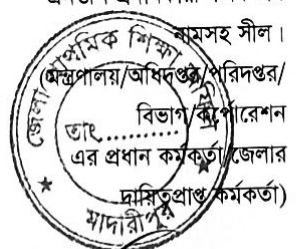 নামসহ সীল।
(মন্ত্রণালয়/অধিদপ্তর/পরিদপ্তর/
বিভাগ/কর্পোরেশন
এর প্রধান কর্মকর্তা/জেলার
দায়িত্বপ্রাপ্ত কর্মকর্তা)
জেলা প্রাথমিক শিক্ষা
তাং...........
মাদারীপুর